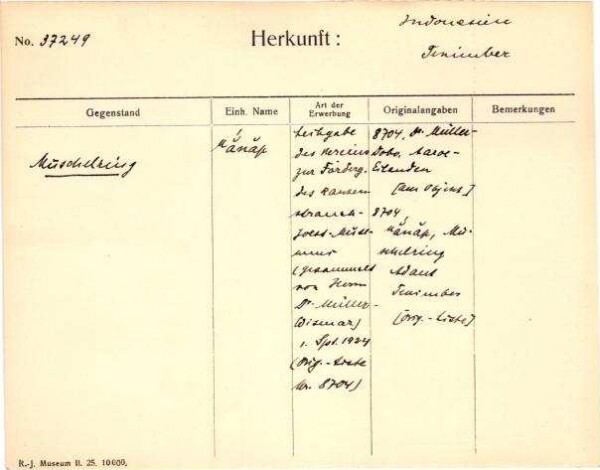 No. 37249
Herkunft:
Indonesien
Tenimber
Gegenstand
Einh. Name
Art der Erwerbung
Originalangaben
Bemerkungen
Muschelring
Leihgabe
des Vereins
zur Förderg.
des Rauten-
strauch-
Joest-Muse-
ums
(gesammelt
von Herrn
Dr. Müller-
Wismar)
1. Spt. 1924
(Orig.-Liste
Nr. 8704)
8704, Dr. Müller-
Dobo, Aaroe-
Eilanden
[am Objekt]
8704,
Mu-
schelring
Adaut
Tenimber
[Orig.-Liste]
R.-J. Museum II. 25. 10000.